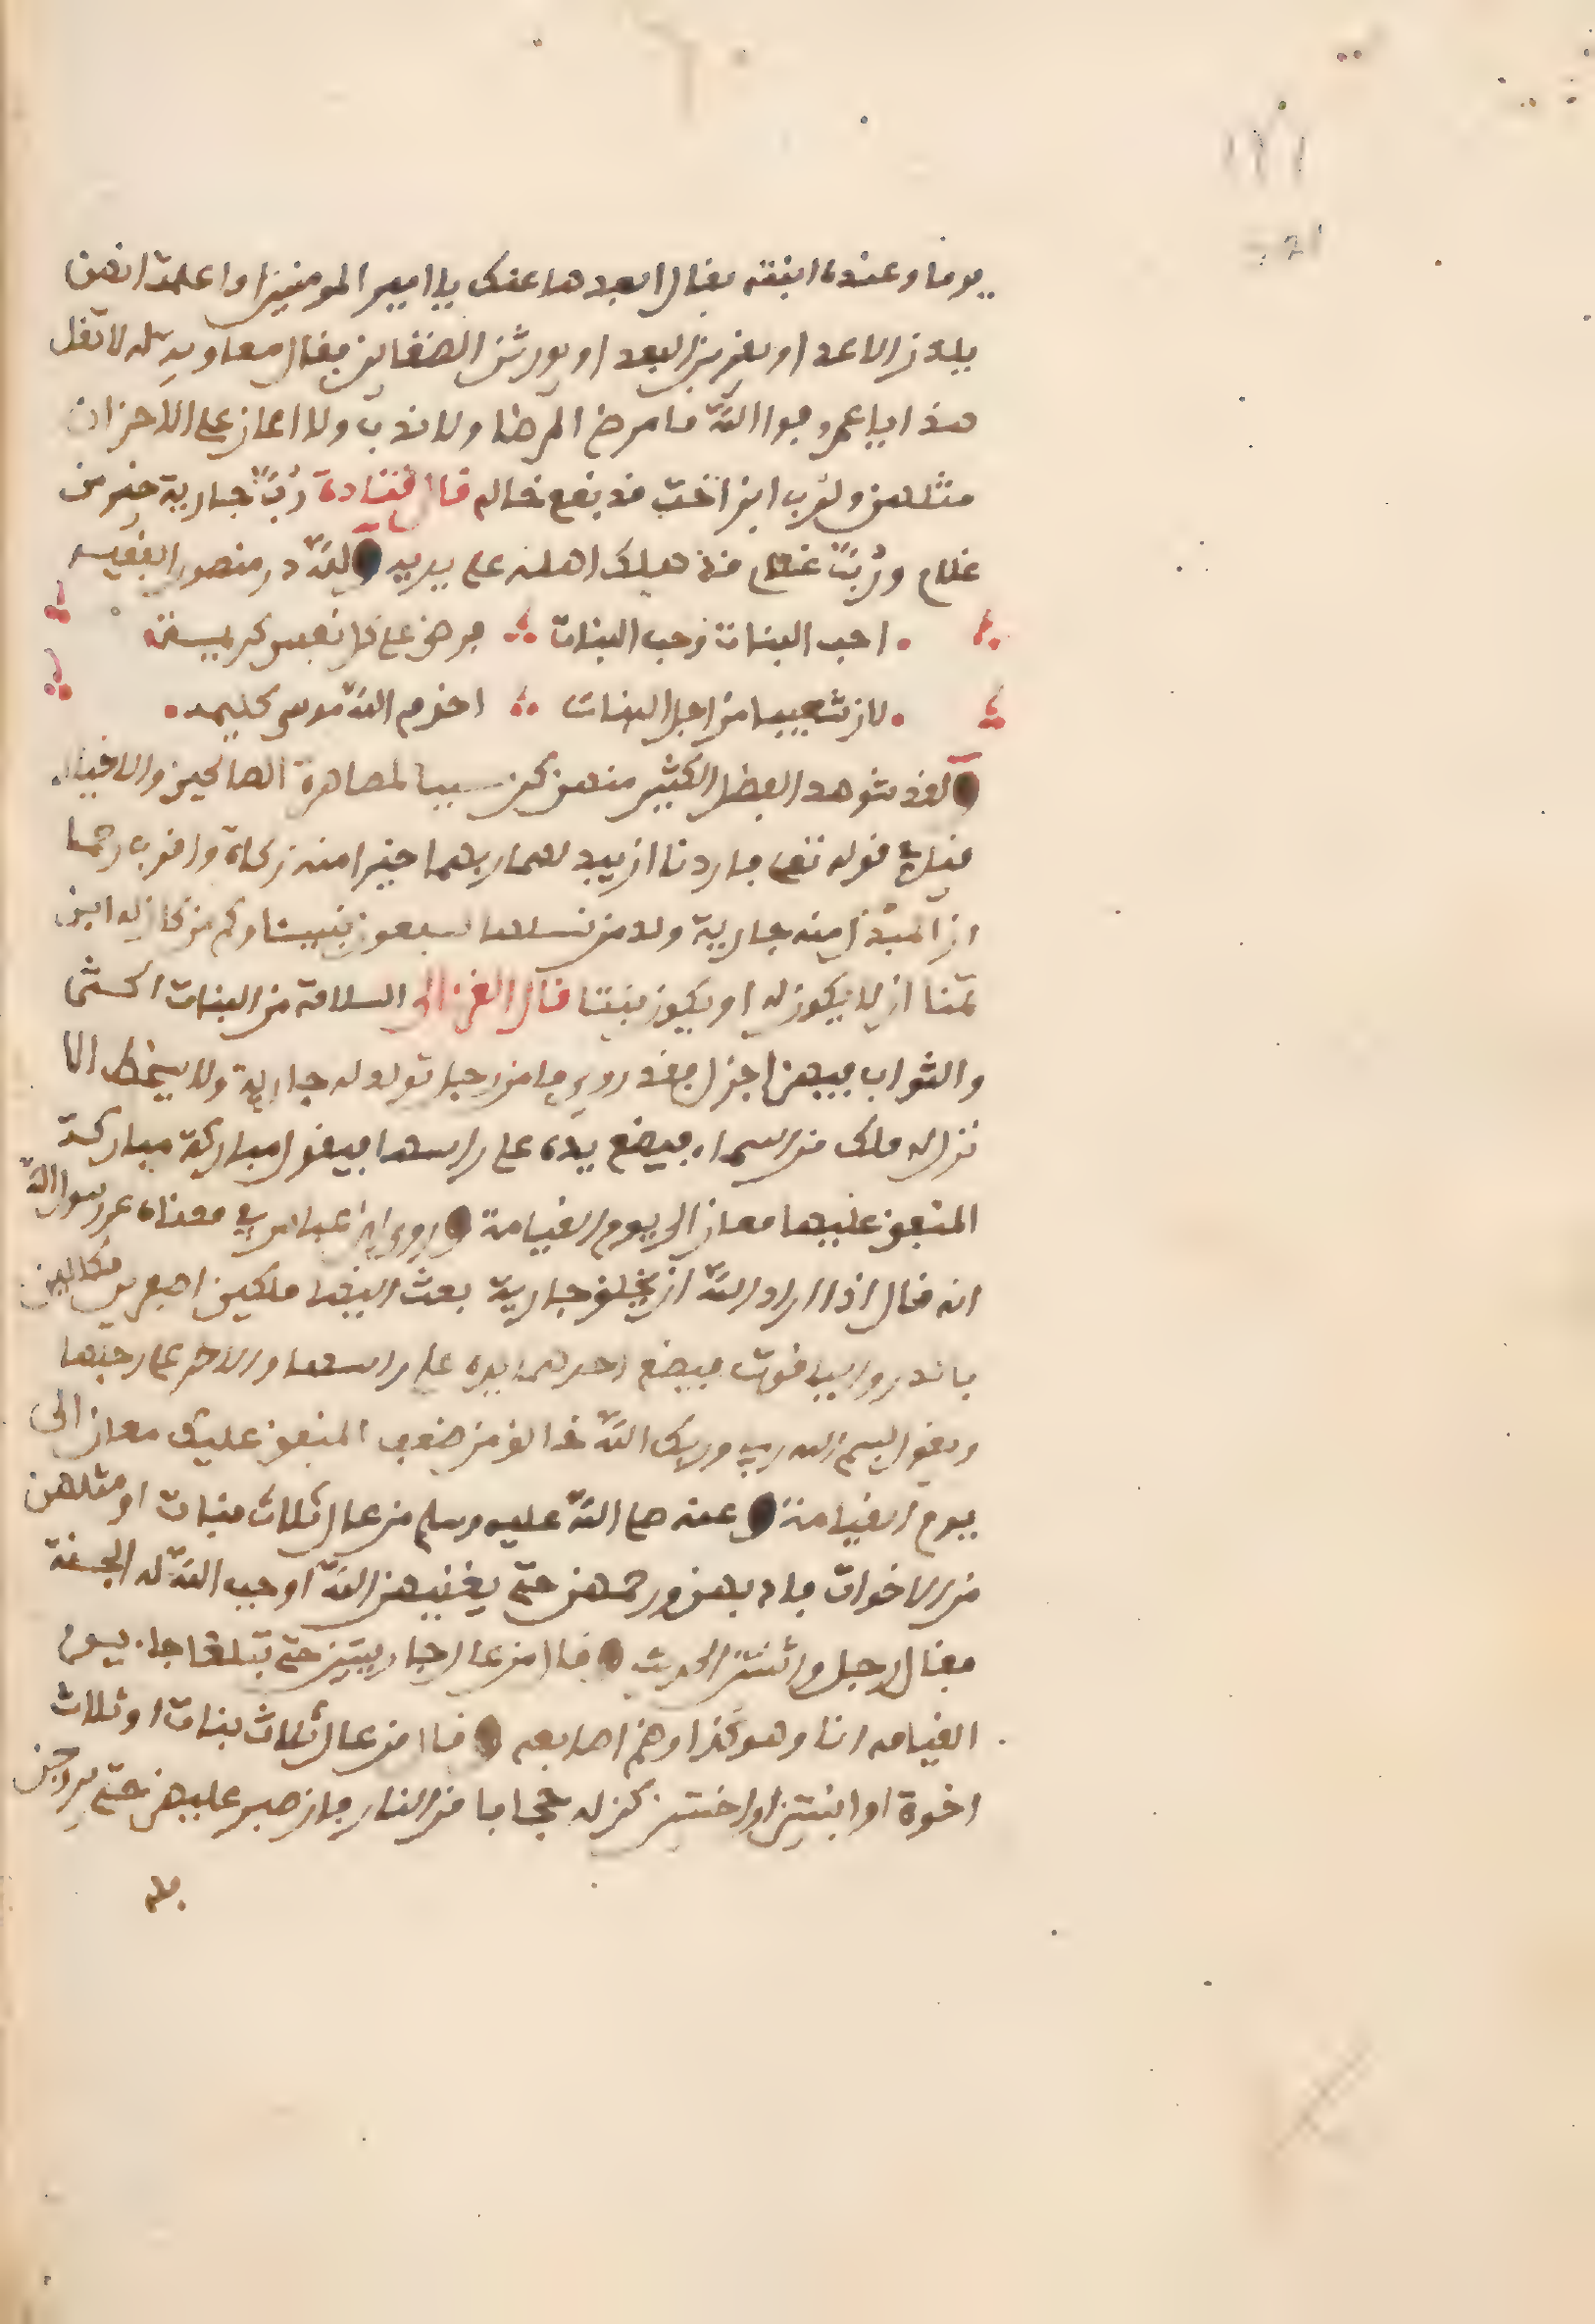 يوما وعنده ابنته فقال ابعدها عنك يا امير المومنين او اعلمت انهن
يلدن الاعدا ويقربن البعدا ويورثن الضغاين فقال معاوية له لا تقل
هذا يا عمرو فوا الله ما مرض المرضا ولا ندب ولا اعان على الاحزان
مثلهن ولرب ابن اخت قد نفع خاله قال قتادة رُبَّ جارية خير من
غلام ورُبَّ غلام قد هلك اهله على يديه ولله در منصور الفقيه
احب البنات وحب البنات فرض على كل نفس كريمة
لان شعيبا من اجل البنات اخدم الله موسى كليمه
ولقد شوهد الفضل الكثير منهن كن سببا لمصاهرة الصالحين والاخيار
قيل في قوله تعلى فاردنا ان يبدلهما ربهما خيرا منه زكاة واقرب رحما
ان المبدل منه جارية ولد من نسلها سبعون نبيئا وكم من كان له ابن
تمنا ان لا يكون له او يكون بنتا قال الغزالي السلامة من البنات اكثر
والثواب فيهن اجزل فقد روي ما من رجل تولد له جارية ولا يسخط الا
نزل له ملك من السماء فيضع يده على راسها فيقول مباركة مباركة
المنفق عليها معان الى يوم القيامة وروى ابن عباس في معناه عن رسول الله
انه قال اذا اراد الله ان يخلق جارية بعث اليها ملكين اصفرين مكللين
بالدر والياقوت فيضع احدهما يده على راسها والاخر على رجلها
ويقول بسم الله ربي وربك الله خالق من ضعف المنفق عليك معان الى
يوم القيامة وعنه صلى الله عليه وسلم من عال ثلاث بنات او مثلهن
من الاخوات فادبهن ورحمهن حتى يغنيهن الله اوجب الله له الجنة
فقال رجل واثنتين الحديث وقال من عال جاريتين حتى تبلغا جاء يوم
القيامه انا وهو كذا وضم اصابعه وقال من عال ثلاث بنات او ثلاث
اخوة او ابنتين او اختين كن له حجابا من النار فان صبر عليهن حتى